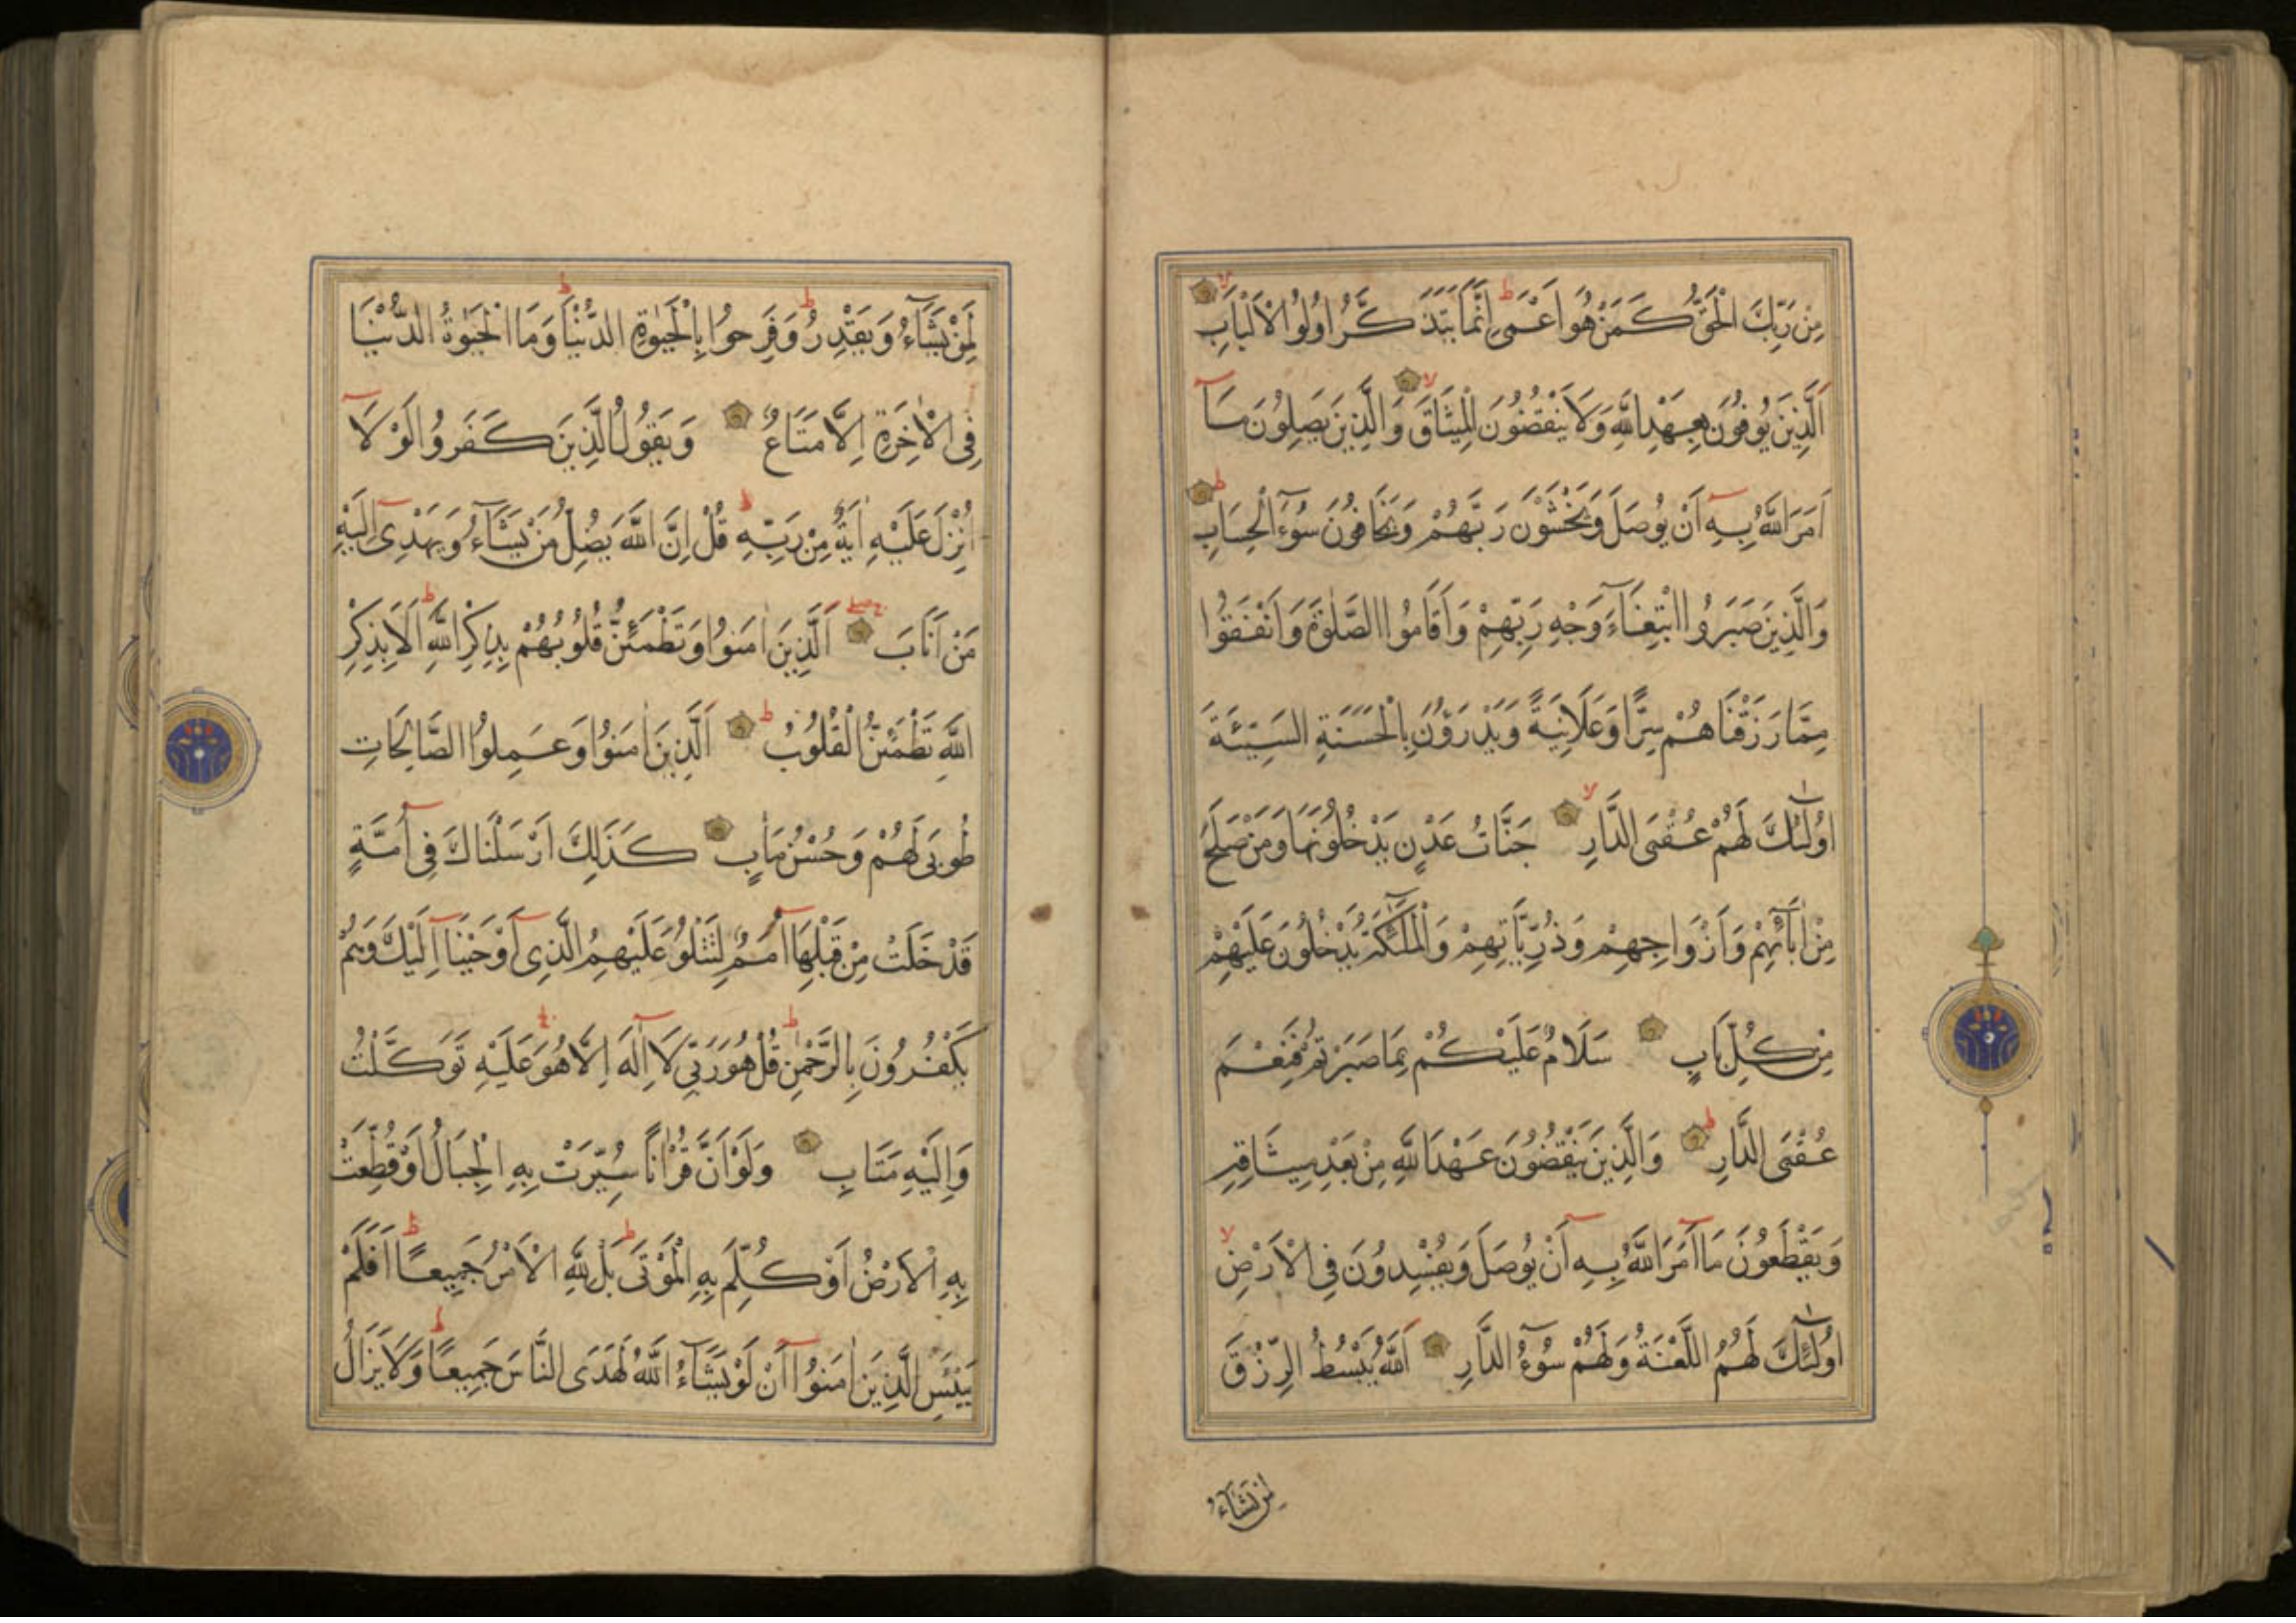 مِنْ رَبِّكَ الْحَقُّ كَمَنْ هُوَ اَعْمٰى اِنَّمَا يَتَذَكَّرُ اُولُوا الْاَلْبَابِ
اَلَّذِينَ يُوفُونَ بِعَهْدِ اللّٰهِ وَلَا يَنْقُضُونَ الْمِيثَاقَ وَالَّذِينَ يَصِلُونَ مَآ
اَمَرَ اللّٰهُ بِهِ اَنْ يُوصَلَ وَيَخْشَوْنَ رَبَّهُمْ وَيَخَافُونَ سُوٓءَ الْحِسَابِ
وَالَّذِينَ صَبَرُوا ابْتِغَآءَ وَجْهِ رَبِّهِمْ وَاَقَامُوا الصَّلٰوةَ وَاَنْفَقُوا
مِمَّا رَزَقْنَاهُمْ سِرًّا وَعَلَانِيَةً وَيَدْرَؤُنَ بِالْحَسَنَةِ السَّيِّئَةَ
اُولٰٓئِكَ لَهُمْ عُقْبَى الدَّارِ جَنَّاتُ عَدْنٍ يَدْخُلُونَهَا وَمَنْ صَلَحَ
مِنْ اٰبَآئِهِمْ وَاَزْوَاجِهِمْ وَذُرِّيَّاتِهِمْ وَالْمَلٰٓئِكَةُ يَدْخُلُونَ عَلَيْهِمْ
مِنْ كُلِّ بَابٍ سَلَامٌ عَلَيْكُمْ بِمَا صَبَرْتُمْ فَنِعْمَ
عُقْبَى الدَّارِ وَالَّذِينَ يَنْقُضُونَ عَهْدَ اللّٰهِ مِنْ بَعْدِ مِيثَاقِهِ
وَيَقْطَعُونَ مَا اَمَرَ اللّٰهُ بِهِ اَنْ يُوصَلَ وَيُفْسِدُونَ فِى الْاَرْضِ
اُولٰٓئِكَ لَهُمُ اللَّعْنَةُ وَلَهُمْ سُوٓءُ الدَّارِ اَللّٰهُ يَبْسُطُ الرِّزْقَ
لِمَنْ يَشَآءُ
لِمَنْ يَشَآءُ وَيَقْدِرُ وَفَرِحُوا بِالْحَيٰوةِ الدُّنْيَا وَمَا الْحَيٰوةُ الدُّنْيَا
فِى الْاٰخِرَةِ اِلَّا مَتَاعٌ وَيَقُولُ الَّذِينَ كَفَرُوا لَوْلَا
اُنْزِلَ عَلَيْهِ اٰيَةٌ مِنْ رَبِّهِ قُلْ اِنَّ اللّٰهَ يُضِلُّ مَنْ يَشَآءُ وَيَهْدِى اِلَيْهِ
مَنْ اَنَابَ اَلَّذِينَ اٰمَنُوا وَتَطْمَئِنُّ قُلُوبُهُمْ بِذِكْرِ اللّٰهِ اَلَا بِذِكْرِ
اللّٰهِ تَطْمَئِنُّ الْقُلُوبُ اَلَّذِينَ اٰمَنُوا وَعَمِلُوا الصَّالِحَاتِ
طُوبٰى لَهُمْ وَحُسْنُ مَاٰبٍ كَذٰلِكَ اَرْسَلْنَاكَ فِى اُمَّةٍ
قَدْ خَلَتْ مِنْ قَبْلِهَا اُمَمٌ لِتَتْلُوَ عَلَيْهِمُ الَّذِى اَوْحَيْنَا اِلَيْكَ وَهُمْ
يَكْفُرُونَ بِالرَّحْمٰنِ قُلْ هُوَ رَبِّى لَا اِلٰهَ اِلَّا هُوَ عَلَيْهِ تَوَكَّلْتُ
وَاِلَيْهِ مَتَابِ وَلَوْ اَنَّ قُرْاٰنًا سُيِّرَتْ بِهِ الْجِبَالُ اَوْ قُطِّعَتْ
بِهِ الْاَرْضُ اَوْ كُلِّمَ بِهِ الْمَوْتٰى بَلْ لِلّٰهِ الْاَمْرُ جَمِيعًا اَفَلَمْ
يَيْئَسِ الَّذِينَ اٰمَنُوا اَنْ لَوْ يَشَآءُ اللّٰهُ لَهَدَى النَّاسَ جَمِيعًا وَلَا يَزَالُ